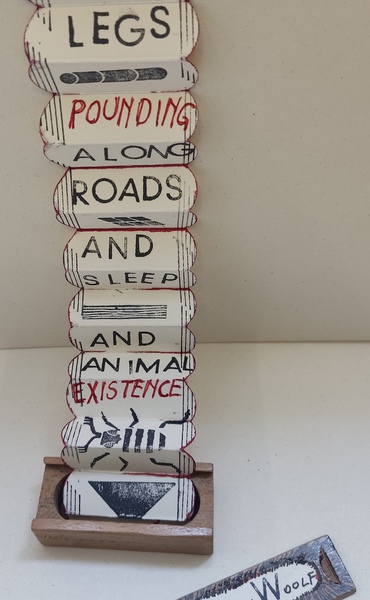 LEGS
POUNDING
ALONG
ROADS
AND
SLEEP
AND
ANIMAL
EXISTENCE
WOOLF